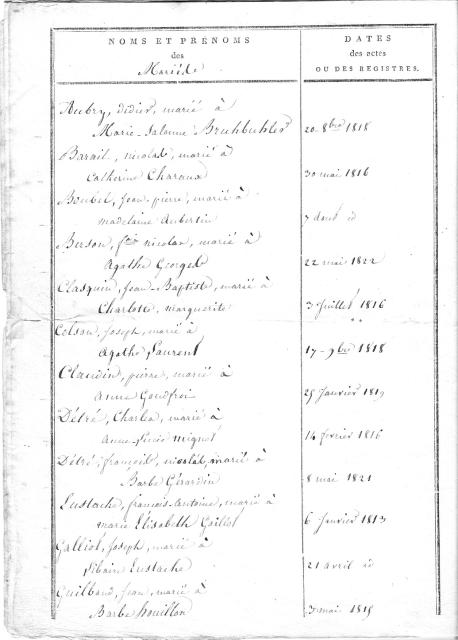 NOMS ET PRÉNOMS
des
Mariés
DATES
des actes
OU DES REGISTRES.
Aubry, didier, marié à
Marie-Salomé Bruhbuhler 20 8bre 1818
Barail, nicolas, marié à
Catherine Charaux 30 mai 1816
Beubel, jean-pierre, marié à
madelaine Aubertin 7 aout id
Berson, fois nicolas, marié à
Agathe Georges 22 mai 1822
Clasquin, Jean-Baptiste, marié à
Charlotte, marguerite 3 Juillet 1816
Colson, Joseph, marié à
Agathe Laurent 17 9bre 1818
Claudin, pierre, marié à
Anne Gondfroi 25 Janvier 1819
Détré, Charles, marié à
Anne mignot 14 fevrier 1816
Détré, françois, nicolas, marié à
Barbe Gérardin 8 mai 1821
Eustache, françois-Antoine, marié à
marie Élisabeth Galliot 6 Janvier 1813
Galliot, Joseph, marié à
Eustache 21 avril id
Guilbaud, Jean, marié à
Barbe houillon 3 mai 1815